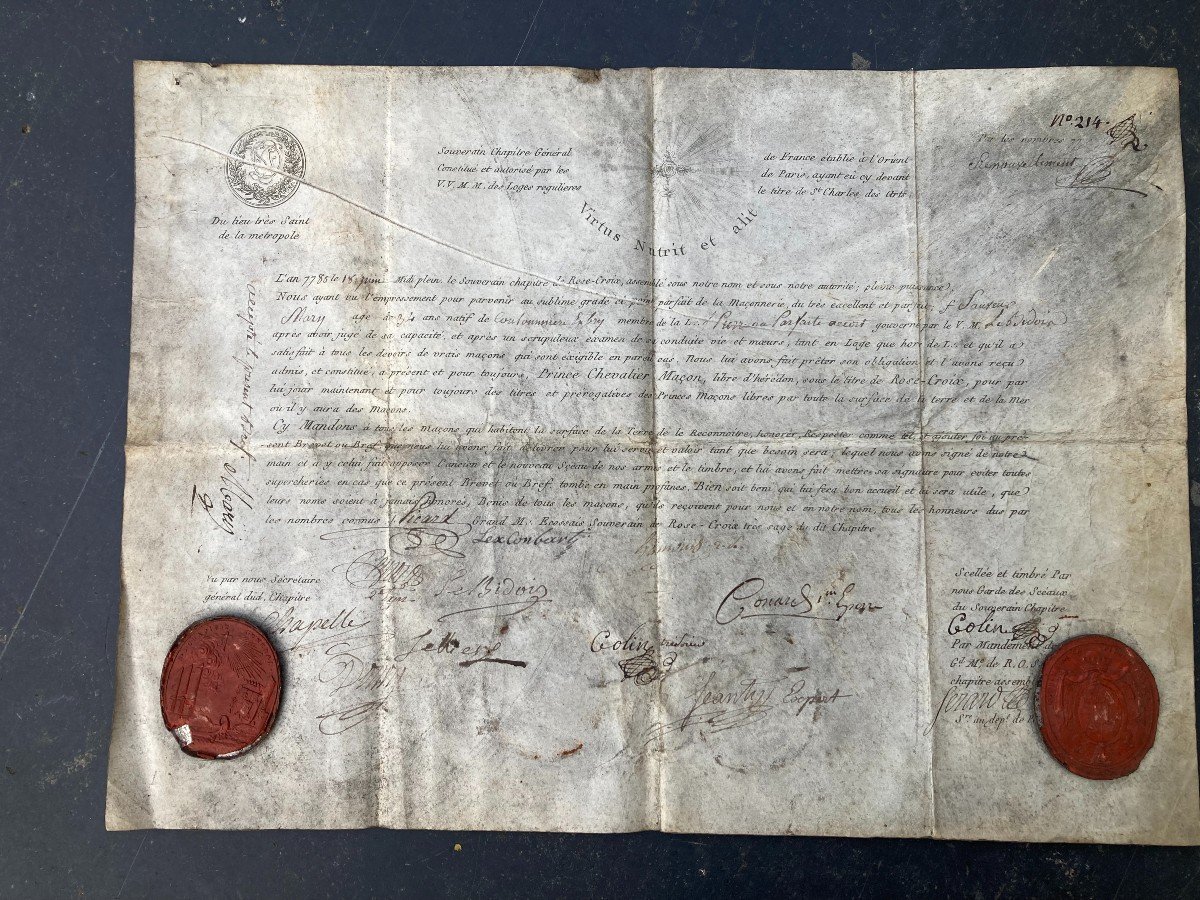 Nº 214.
Souverain Chapitre Général
Constitué et autorisé par les
V.V. M. M. des Loges regulieres
de France établie à l'Orient
de Paris, ayant eû cy devant
le titre de St Charles des Arts
Par les nombres
Du lieu très Saint
de la metropole
Virtus Nutrit et alit
L'an 7785 le 18 juin Midi plein, le Souverain chapitre de Rose-Croix, assemblé sous notre nom et sous notre autorité; pleine puissance
Nous ayant vu l'empressement pour parvenir au sublime grade et point parfait de la Maçonnerie, du très excellent et parfait f.
Mary agé de ans natif de membre de la L. gouverné par le V. M. LeBidois
après avoir jugé de sa capacité, et après un scrupuleux examen de sa conduite vie et mœurs, tant en Loge que hors de L. et qu'il a
satisfait à tous les devoirs de vrais maçons qui sont exigible en pareil cas. Nous lui avons fait prêter son obligation et l'avons reçu
admis, et constitué, à présent et pour toujours, Prince Chevalier Maçon, libre d'hérédon, sous le titre de Rose-Croix, pour par
lui jouir maintenant et pour toujours des titres et prérogatives des Princes Maçons libres par toute la surface de la terre et de la Mer
où il y aura des Maçons.
Cy Mandons à tous les maçons qui habitent la surface de la Terre de le Reconnoitre, honorer, Respecter comme tel et ajouter foi au pré-
sent Brevet ou Bref que nous lui avons fait délivrer pour lui servir et valoir tant que besoin sera; lequel nous avons signé de notre
main et a y celui fait apposer l'ancien et le nouveau Sceau de nos armes et le timbre, et lui avons fait mettre sa signature pour eviter toutes
supercheries en cas que ce présent Brevet ou Bref tombe en main profanes. Bien soit beni qui lui fera bon accueil et lui sera utile, que
leurs noms soient à jamais honorés, Benis de tous les maçons, qu'ils reçoivent pour nous et en notre nom, tous les honneurs dus par
les nombres connus Picard Grand M. Ecossais Souverain de Rose-Croix très sage du dit Chapitre
Vu par nous Secrétaire
général dud. Chapitre
Chapelle
LeBidois
Colin
Scellée et timbré Par
nous Garde des Sceaux
du Souverain Chapitre
Colin
Par Mandement du
Gd. Me. de R.O.S
chapitre assemblé